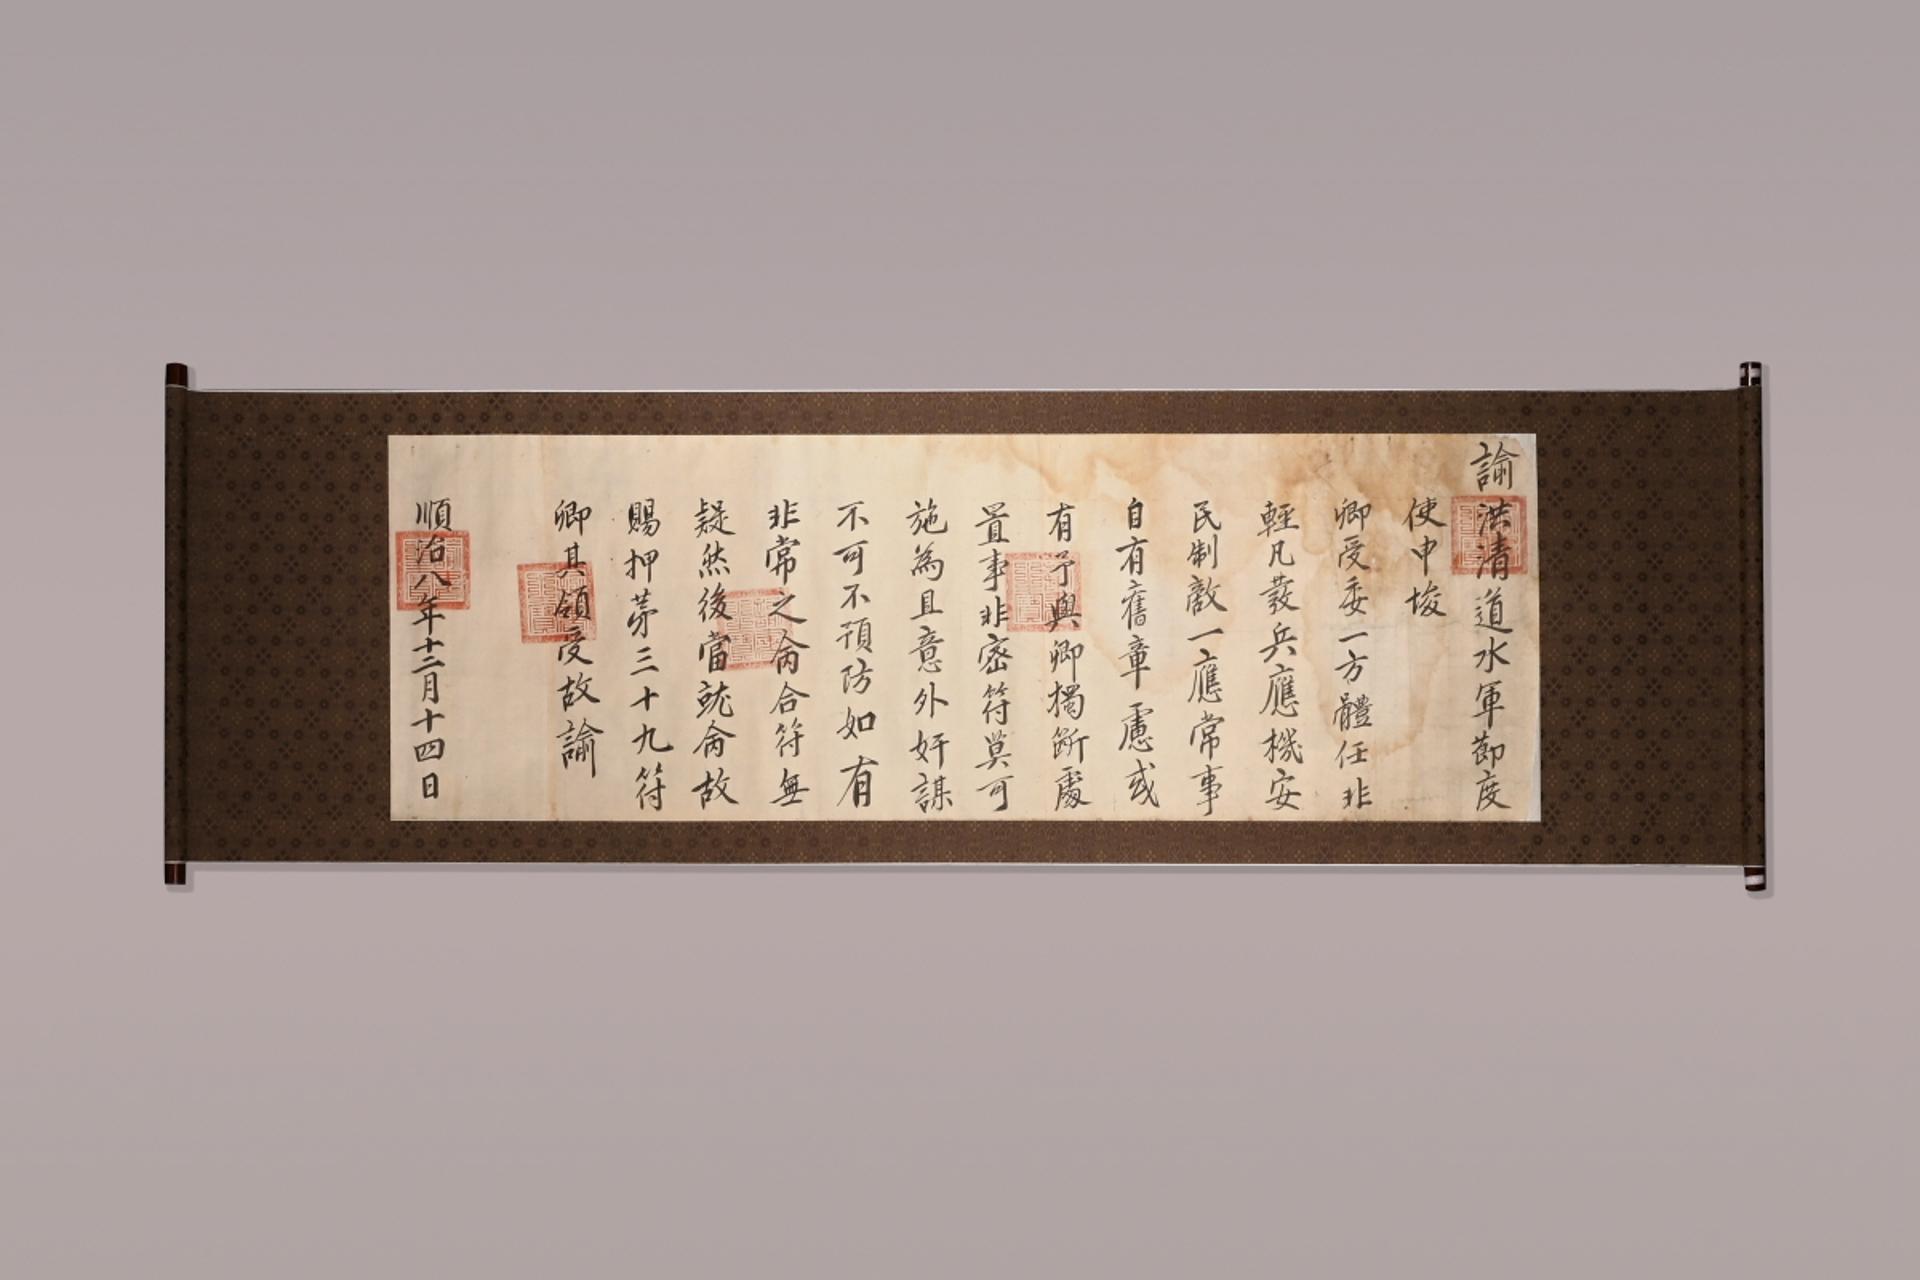 諭洪清道水軍節度
使申埈
卿受委一方體任非
輕凡發兵應機安
民制敵一應常事
自有舊章慮或
有予與卿獨斷處
置事非密符莫可
施為且意外奸謀
不可不預防如有
非常之命合符無
疑然後當就命故
賜押苐三十九符
卿其領受故諭
順治八年十二月十四日